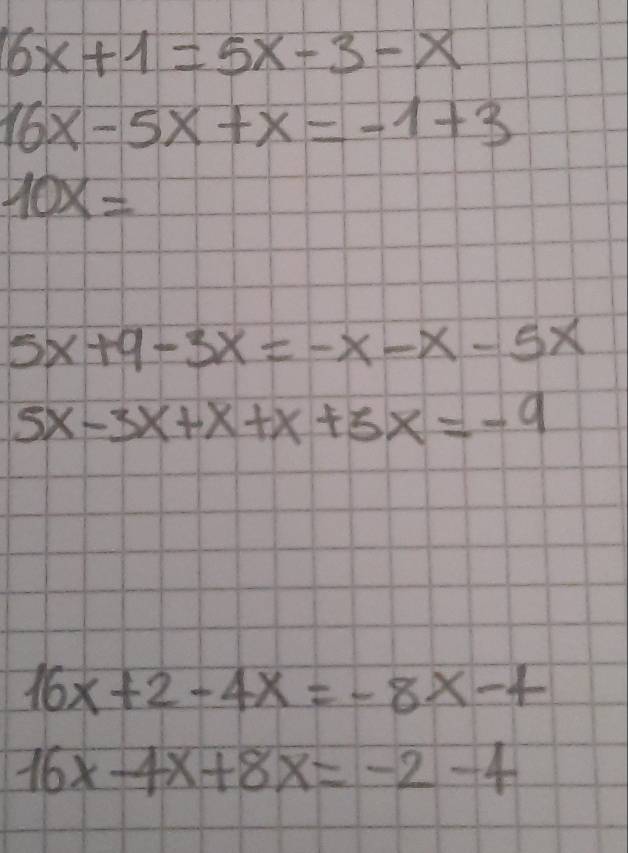 16x+1=5x-3-x
16x-5x+x=-1+3
10x=
5x+9-3x=-x-x-5x
5x-3x+x+x+5x=-9
16x+2-4x=-8x-4
16x-4x+8x=-2-4